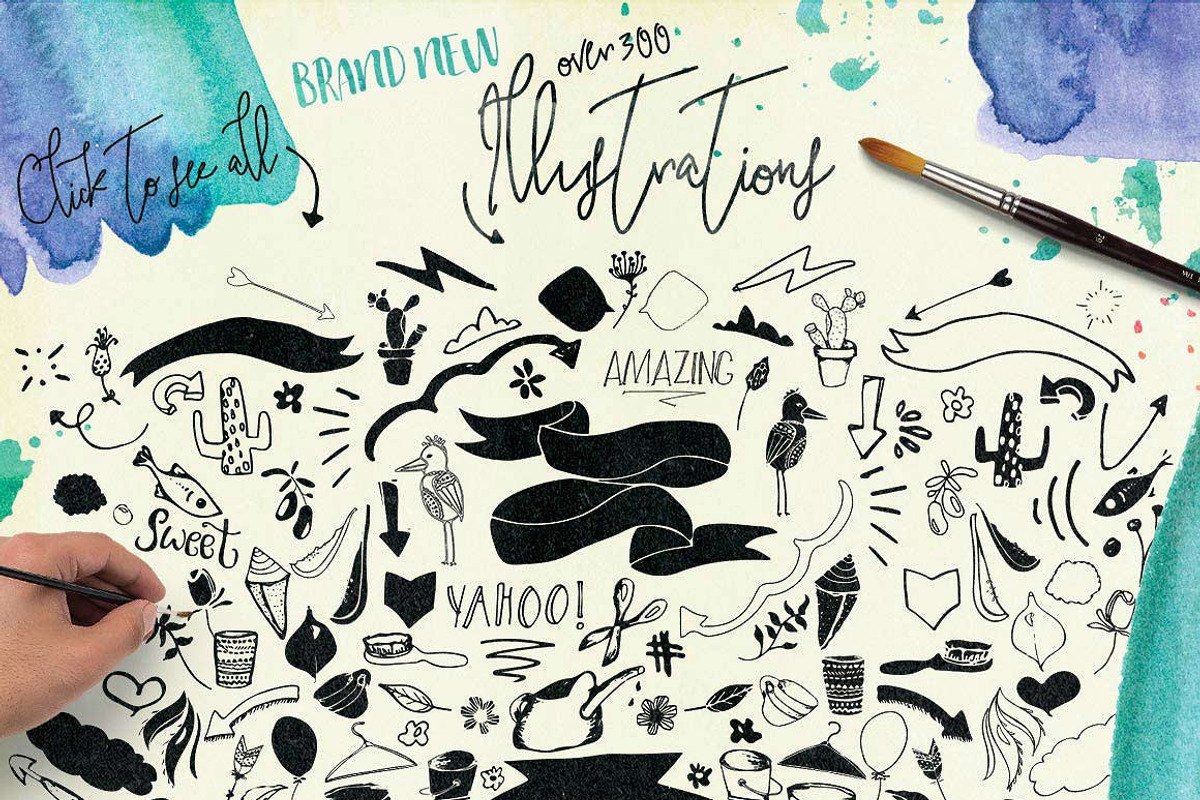 BRAND NEW
over 300
Click to see all
Illustrations
AMAZING
Sweet
YAHOO!
#